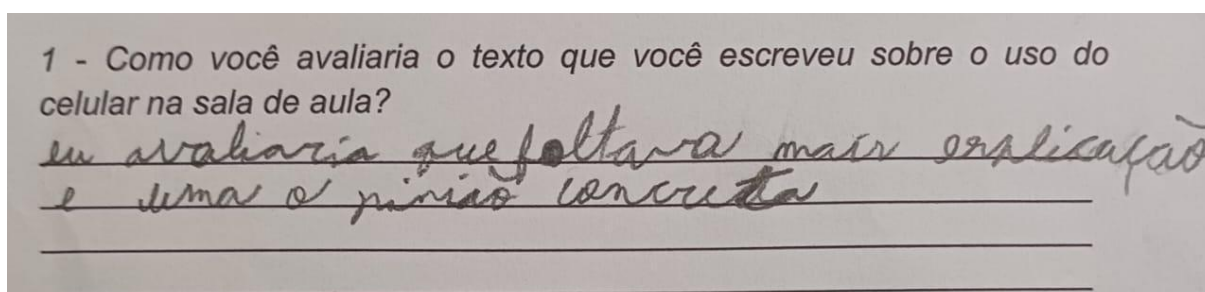 1 - Como você avaliaria o texto que você escreveu sobre o uso do
celular na sala de aula?
eu avaliaria que faltava mais explicação
e uma o pinião concreta